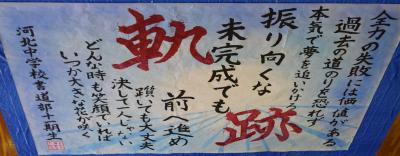 全力の失敗には価値がある
過去の道のりを恐れず
本気で夢を追いかけろ
振り向くな
未完成でも
軌跡
前へ進め
躓いても大丈夫
決して一人じゃない
どんな時も笑顔でいれば
いつか大きな花が咲く
河北中学校書道部十期生